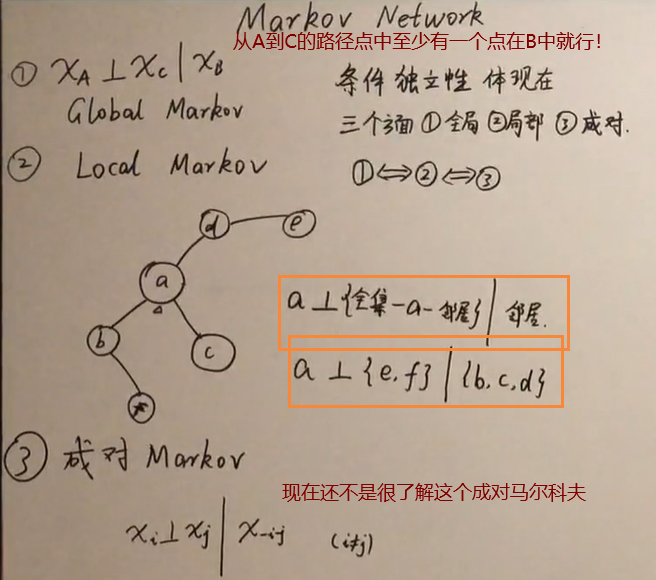 Markov Network
从A到C的路径点中至少有一个点在B中就行!
① XA ⊥ XC | XB
Global Markov
条件独立性 体现在
三个方面 ①全局 ②局部 ③成对.
② Local Markov
①⇔②⇔③
d e
a
b c
f
a ⊥ {全集-a-邻居} | 邻居.
a ⊥ {e, f} | {b, c, d}
③ 成对 Markov
现在还不是很了解这个成对马尔科夫
xi ⊥ xj | x-i-j (i≠j)